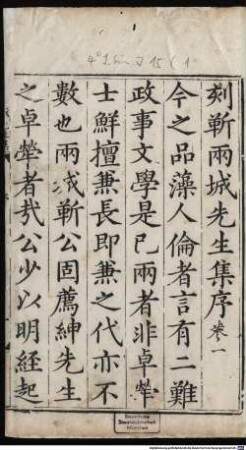 4° L. sin. J 15 (1
刻靳兩城先生集序 卷一
今之品藻人倫者言有二難
政事文學是已兩者非卓犖
士鮮擅兼長即兼之代亦不
數也兩城靳公固薦紳先生
之卓犖者㢤公少以明經起
Bayerische
Staatsbibliothek
München